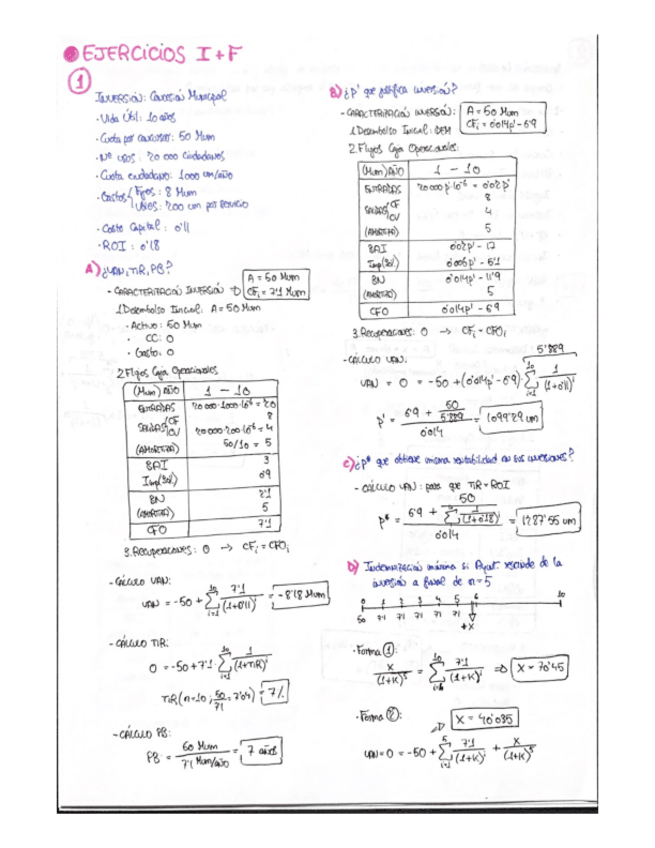 EJERCICIOS I+F
1
INVERSIÓN: Concesión Municipal
· Vida Útil: 10 años
· Cuota por concesión: 50 Mum
· Nº usos: 20 000 ciudadanos
· Cuota ciudadano: 1000 um/año
· Costos Fijos: 8 Mum
Usos: 200 um por servicio
· Coste Capital: 0'11
· ROI: 0'18
A) ¿VAN, TIR, PB?
- CARACTERIZACIÓN INVERSIÓN → A = 50 Mum
CFi = 7'1 Mum
1. Desembolso Inicial: A = 50 Mum
· Activo: 50 Mum
· CC: 0
· Gasto: 0
2. Flujos Caja Operacionales
(Mum) AÑO 1 - 10
ENTRADAS 20 000·1000·10⁻⁶ = 20
SALIDAS CF 8
CV 20 000·200·10⁻⁶ = 4
(AMORTIZA) 50/10 = 5
BAI 3
Imp(30%) 0'9
BN 2'1
(AMORTIZA) 5
CFO 7'1
3. Recuperaciones: 0 → CFi = CFOi
- CÁLCULO VAN:
VAN = -50 + Σ 10 i=1 7'1 / (1+0'11)^i = -8'18 Mum
- CÁLCULO TIR:
0 = -50 + 7'1 · Σ 10 i=1 1 / (1+TIR)^i
TIR (n=10; 50/7'1 = 7'04) = 7%
- CÁLCULO PB:
PB = Mum / 7'1 Mum/año = 7 años
B) ¿p' que justifica inversión?
- CARACTERIZACIÓN INVERSIÓN: A = 50 Mum
CFi = 0'014p' - 6'9
1. Desembolso Inicial: IDEM
2. Flujos Caja Operacionales:
(Mum) AÑO 1 - 10
ENTRADAS 20 000 p'·10⁻⁶ = 0'02p'
SALIDAS CF 8
CV 4
(AMORTIZA) 5
BAI 0'02p' - 17
Imp(30%) 0'006p' - 5'1
BN 0'014p' - 11'9
(AMORTIZA) 5
CFO 0'014p' - 6'9
3. Recuperaciones: 0 → CFi = CFOi
- CÁLCULO VAN: 5'889
VAN = 0 = -50 + (0'014p' - 6'9) · Σ 10 i=1 1 / (1+0'11)^i
p' = (6'9 + 50 / 5'889) / 0'014 = 1099'29 um
C) ¿p* que obtiene misma rentabilidad en sus inversiones?
- CÁLCULO VAN: para que TIR = ROI
p* = (6'9 + 50 / Σ 10 i=1 1 / (1+0'18)^i) / 0'014 = 1287'55 um
D) Indemnización máxima si Ayunt. rescinde de la
inversión a final de n = 5
0 1 2 3 4 5 6 10
50 7'1 7'1 7'1 7'1 7'1
+X
· Forma 1:
X / (1+K)^5 = Σ 10 i=6 7'1 / (1+K)^i ⇒ X = 70'45
· Forma 2: X = 40'035
VAN = 0 = -50 + Σ 5 i=1 7'1 / (1+K)^i + X / (1+K)^5